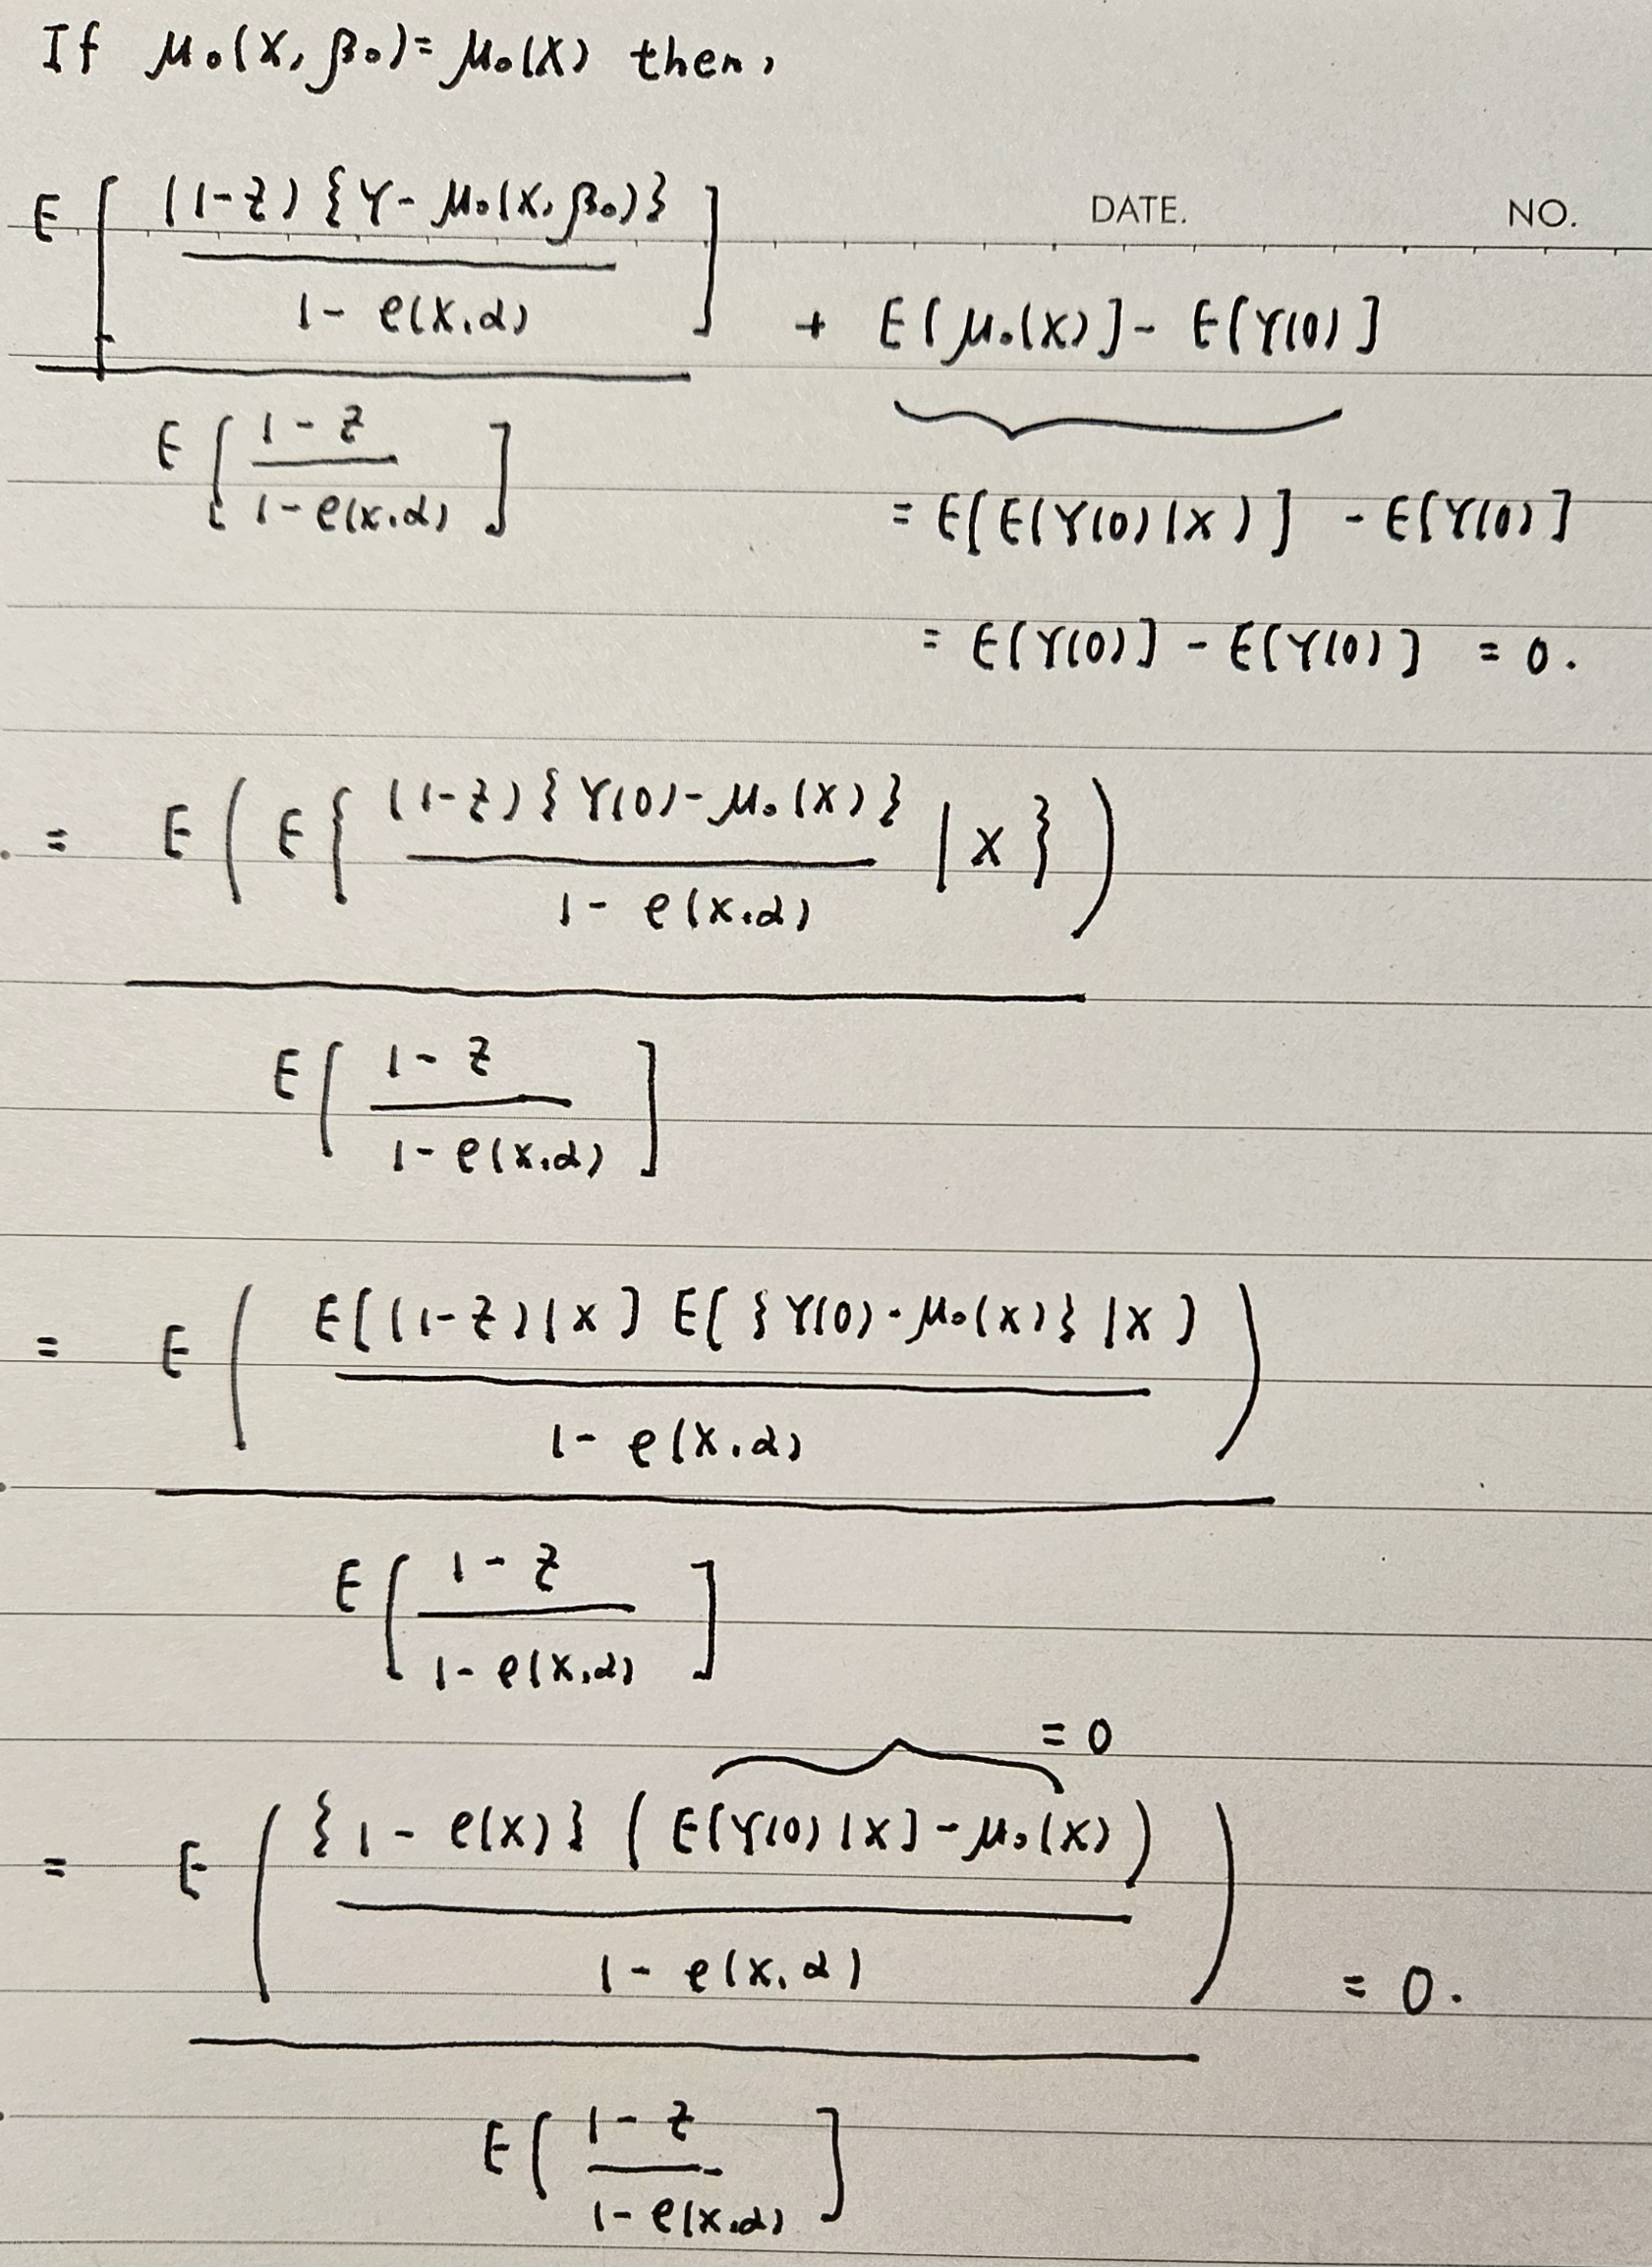 If μ₀(X, β₀) = μ₀(X) then,
DATE. NO.
E[ (1-Z){Y - μ₀(X, β₀)} / 1 - e(X,α) ] / E[ 1-Z / 1-e(X,α) ] + E[μ₀(X)] - E[Y(0)]
= E[E(Y(0)|X)] - E[Y(0)]
= E[Y(0)] - E[Y(0)] = 0.
= E( E{ (1-Z){Y(0) - μ₀(X)} / 1 - e(X,α) | X } ) / E[ 1-Z / 1-e(X,α) ]
= E( E[(1-Z)|X] E[{Y(0) - μ₀(X)}|X] / 1 - e(X,α) ) / E[ 1-Z / 1-e(X,α) ]
= 0
= E( {1 - e(X)} (E[Y(0)|X] - μ₀(X)) / 1 - e(X,α) ) / E[ 1-Z / 1-e(X,α) ] = 0.